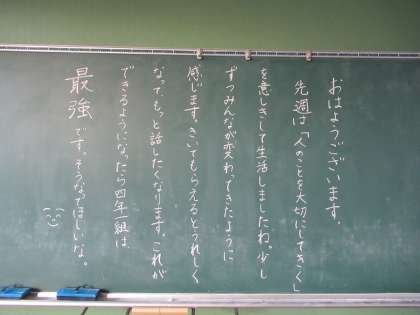 おはようございます。
先週は「人のことを大切にしてきく」
を意しきして生活しましたね。少し
ずつみんなが変わってきたように
感じます。きいてもらえるとうれしく
なって、もっと話したくなります。これが
できるようになったら四年一組は、
最強です。そうなってほしいな。